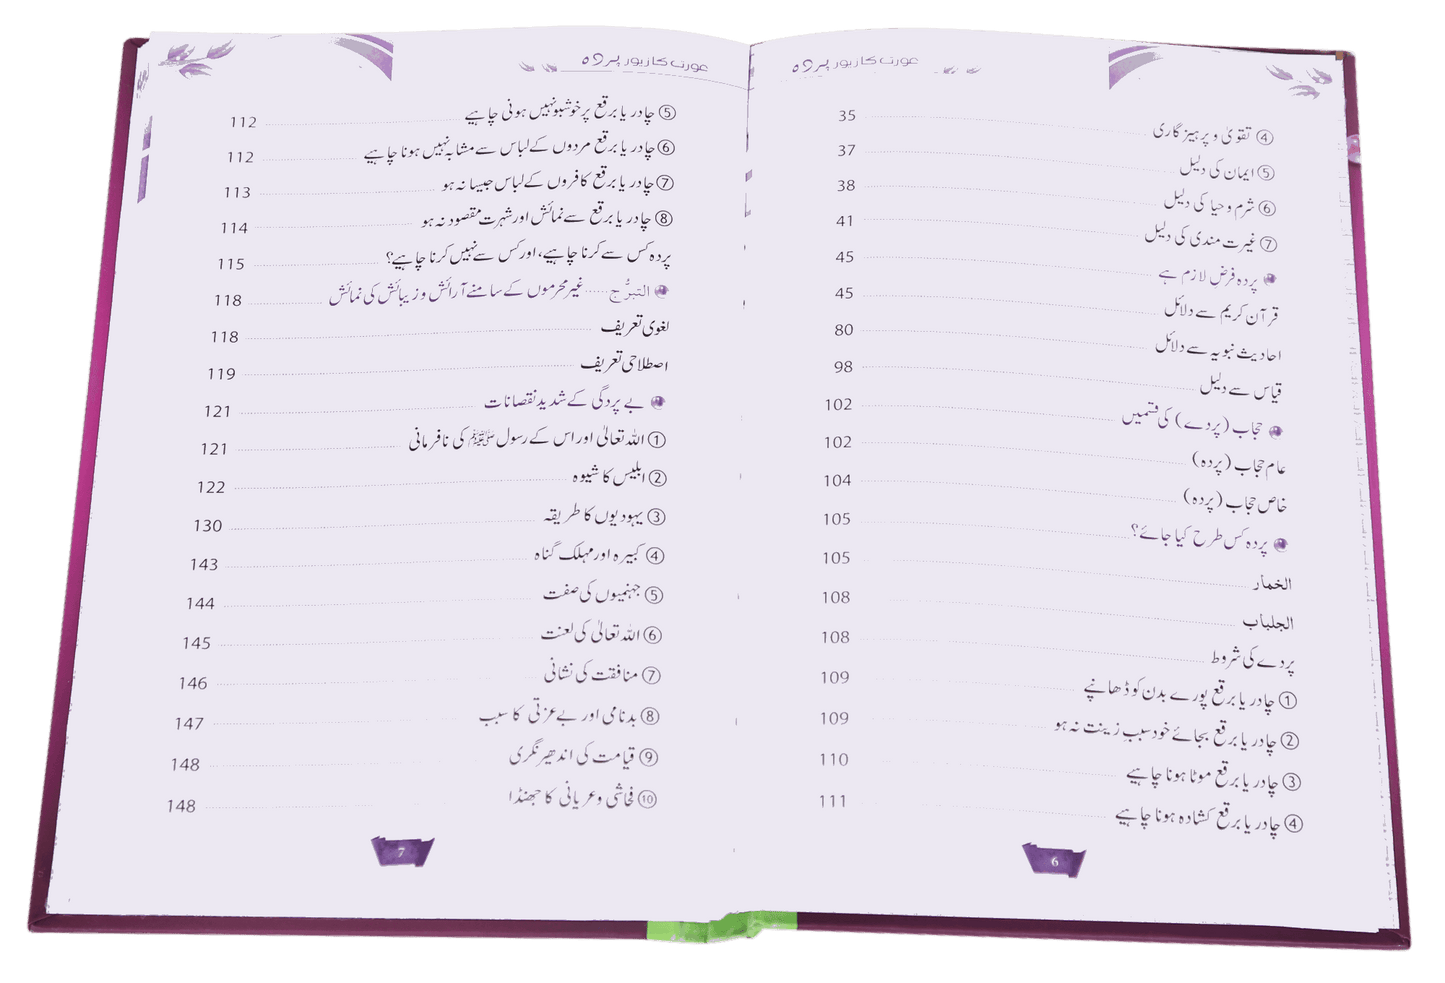 عورت کا زیور پردہ
④ تقویٰ و پرہیز گاری 35
⑤ ایمان کی دلیل 37
⑥ شرم و حیا کی دلیل 38
⑦ غیرت مندی کی دلیل 41
پردہ فرض لازم ہے 45
قرآن کریم سے دلائل 45
احادیث نبویہ سے دلائل 80
قیاس سے دلیل 98
حجاب (پردے) کی قسمیں 102
عام حجاب (پردہ) 102
خاص حجاب (پردہ) 104
پردہ کس طرح کیا جائے؟ 105
الخمار 105
الجلباب 108
پردے کی شروط 108
① چادر یا برقع پورے بدن کو ڈھانپے 109
② چادر یا برقع بجائے خود سبب زینت نہ ہو 109
③ چادر یا برقع موٹا ہونا چاہیے 110
④ چادر یا برقع کشادہ ہونا چاہیے 111
6
عورت کا زیور پردہ
⑤ چادر یا برقع پر خوشبو نہیں ہونی چاہیے 112
⑥ چادر یا برقع مردوں کے لباس سے مشابہ نہیں ہونا چاہیے 112
⑦ چادر یا برقع کافروں کے لباس جیسا نہ ہو 113
⑧ چادر یا برقع سے نمائش اور شہرت مقصود نہ ہو 114
پردہ کس سے کرنا چاہیے، اور کس سے نہیں کرنا چاہیے؟ 115
التبرُّج ..... غیر محرموں کے سامنے آرائش و زیبائش کی نمائش 118
لغوی تعریف 118
اصطلاحی تعریف 119
بے پردگی کے شدید نقصانات 121
① اللہ تعالیٰ اور اس کے رسول ﷺ کی نافرمانی 121
② ابلیس کا شیوہ 122
③ یہودیوں کا طریقہ 130
④ کبیرہ اور مہلک گناہ 143
⑤ جہنمیوں کی صفت 144
⑥ اللہ تعالیٰ کی لعنت 145
⑦ منافقت کی نشانی 146
⑧ بدنامی اور بے عزتی کا سبب 147
⑨ قیامت کی اندھیر نگری 148
⑩ فحاشی و عریانی کا جھنڈا 148
7